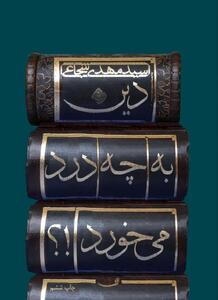 سید مهدی شجاعی
دین
به چه درد
می خورد !؟
چاپ ششم